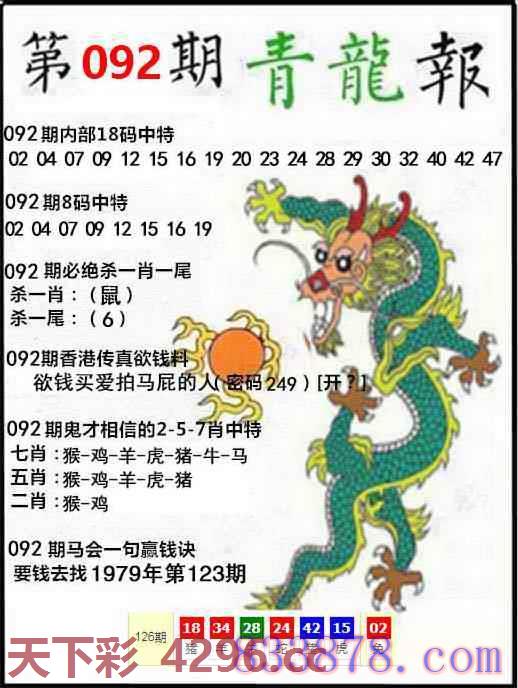 第092期青龍報
092期内部18码中特
02 04 07 09 12 15 16 19 20 23 24 28 29 30 32 40 42 47
092期8码中特
02 04 07 09 12 15 16 19
092 期必绝杀一肖一尾
杀一肖：(鼠)
杀一尾：(6)
092期香港传真欲钱料
欲钱买爱拍马屁的人(密码249)[开?]
092期鬼才相信的2-5-7肖中特
七肖：猴-鸡-羊-虎-猪-牛-马
五肖：猴-鸡-羊-虎-猪
二肖：猴-鸡
092 期马会一句赢钱诀
要钱去找1979年第123期
126期 18 34 28 24 42 15 02
猪 羊 蛇 虎 兔
天下彩 4296.cc